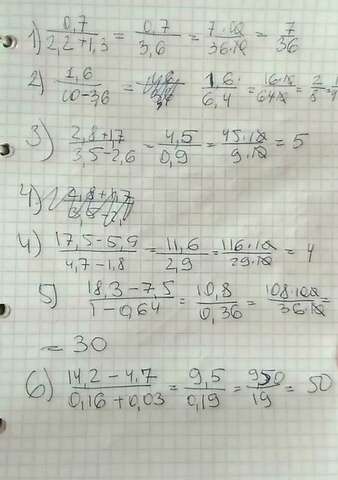 1) 0,7 / 2,2+1,3 = 0,7 / 3,6 = 7·10 / 36·10 = 7 / 36
2) 1,6 / 10-3,6 = 1,6 / 6,4 = 16·10 / 64·10 = 2 / 8 = 1
3) 2,8+1,7 / 3,5-2,6 = 4,5 / 0,9 = 45·10 / 9·10 = 5
4)
4) 17,5-5,9 / 4,7-1,8 = 11,6 / 2,9 = 116·10 / 29·10 = 4
5) 18,3-7,5 / 1-0,64 = 10,8 / 0,36 = 108·100 / 36·10 =
= 30
6) 14,2-4,7 / 0,16+0,03 = 9,5 / 0,19 = 950 / 19 = 50